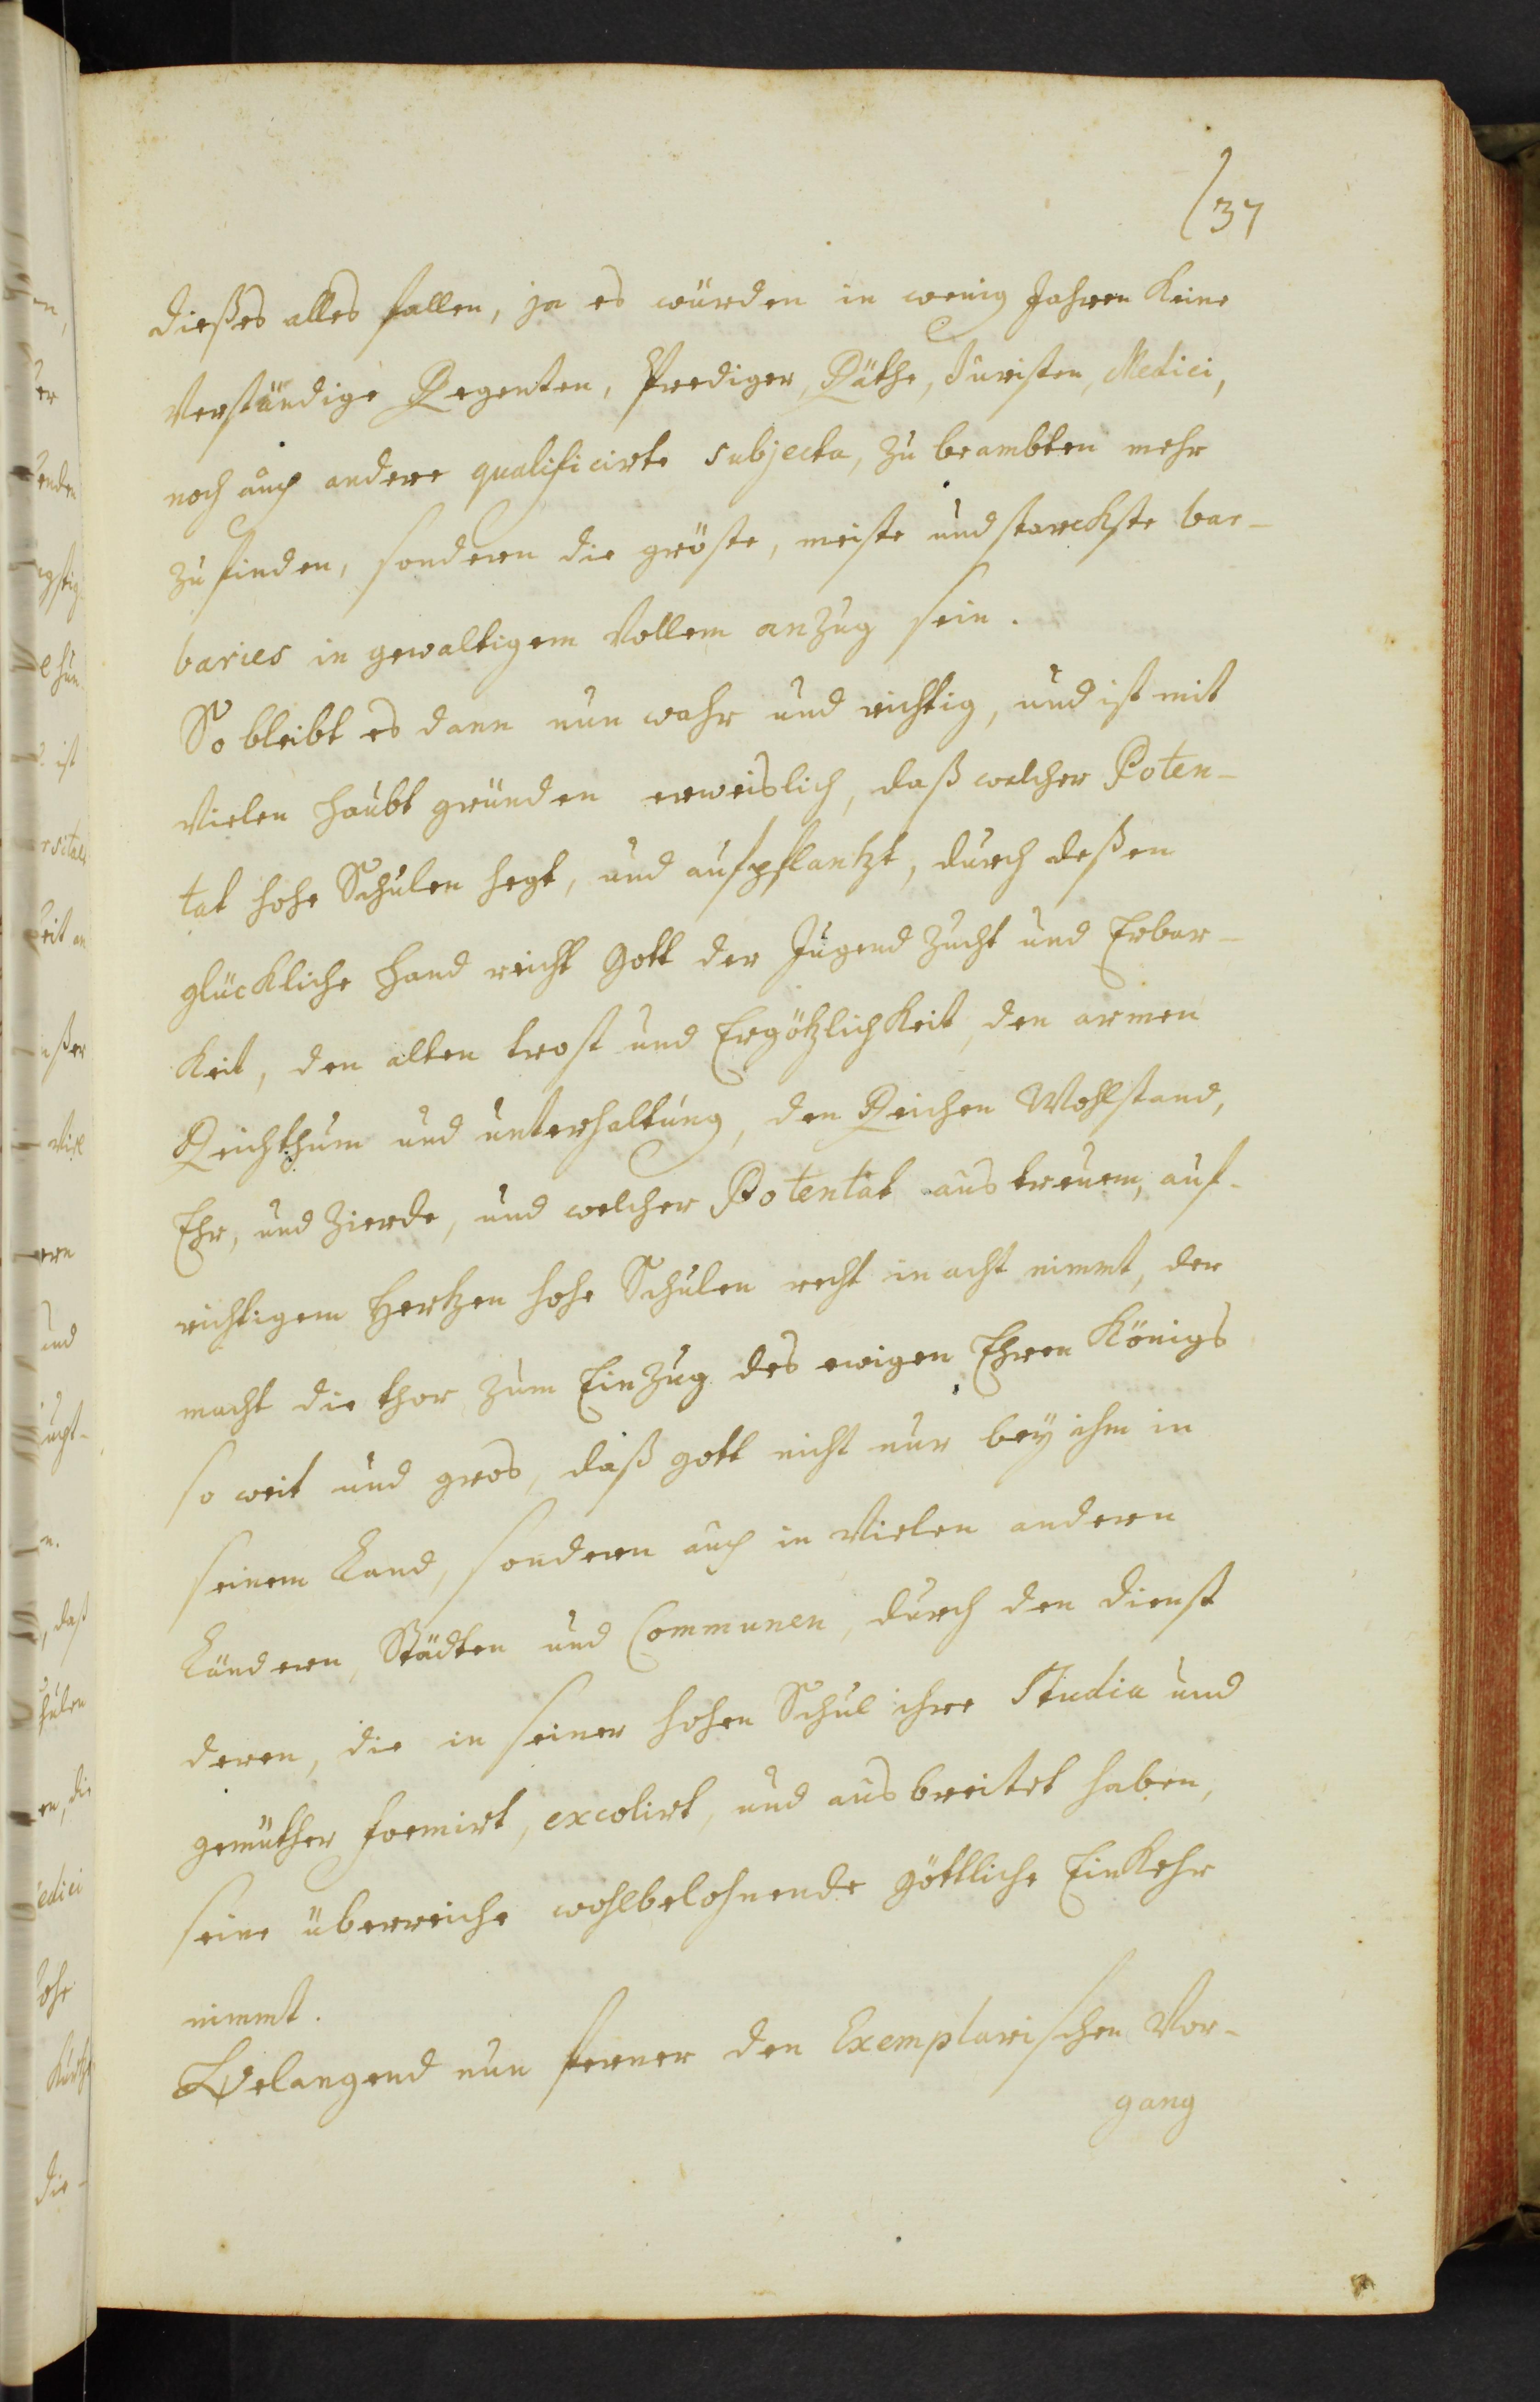 37
dießes alles fallen, ja es würden in wenig Jahren keine
Verständige Regenten, Prediger, Räthe, Juristen, Medici,
noch auch andere qualificirte subjecta, zu beambten mehr
zu finden, sondern die gröste, meiste und starckste bar-
baries in gewaltigem Vollem anzug sein.
So bleibt es dann nun wahr und richtig, und ist mit
Vielen haubt gründen erweislich, daß welcher Poten-
tat hohe Schulen hegt, und aufpflantzt, durch deßen
glückliche hand reicht Gott der Jugend Zucht und Erbar-
keit, den alten trost und Ergötzlichkeit, den armen
Reichthum und unterhaltung, den Reichen Wohlstand,
Ehr, und Zierde, und welcher Potentat aus treuem, auf-
richtigem Hertzen hohe Schulen recht in acht nimmt, der
macht die thor zum Einzug des ewigen Ehren Königs
so weit und gros, daß gott nicht nur bey ihm in
seinem Land, sondern auch in Vielen andern
Ländern, Städten und Communen, durch den dienst
deren, die in seiner hohen Schul ihre Studia und
gemüther formirt, excolirt, und ausbreitet haben,
seine überreiche wohlbelohnende göttliche Einkehr
nimmt.
Belangend nun ferner den Exemplarischen Vor-
gang